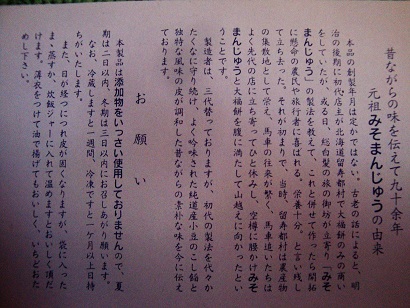 昔ながらの味を伝えて九十余年
元祖みそまんじゅうの由来
本品の創製年月は定かではない。古老の話によると、明
治の後期に初代店主が北海道留寿都村で大福餅のみの商い
をしていたが、或る日、総白髪の旅の御坊が立寄り「みそ
まんじゅう」の製法を教えて、これを併せて作ったら開拓
に懸命の農民や旅行者に喜ばれる。栄養十分。と言い残し
て立ち去った。それが初まりで、当時、留寿都村は農産物
の集散地として栄え、馬車の往来が繁く、馬車追いたちは
よく先代の店に立ち寄ってひと休みし、空樽に腰かけみそ
まんじゅうと大福餅を腹に満たして山越えに向かったとい
うことです。
製造者は、三代替っておりますが、初代の製法を代々か
たくなに守り続け、よく吟味された純道産小豆のこし餡と
独特な風味の皮が調和した昔ながらの素朴な味を今に伝え
ております。
お願い
本製品は添加物をいっさい使用しておりませんので、夏
期は二日以内、冬期は三日以内にお召しあがり願います。
なお、冷蔵しますと一週間、冷凍ですと一ヶ月以上日持
ちがいたします。
また、日が経つにつれ皮が固くなりますが、袋に入った
まゝ蒸すか、炊飯ジャーに入れて温めますとおいしく頂だ
けます。薄衣をつけて油で揚げてもおいしく、いちどおた
めし下さい。